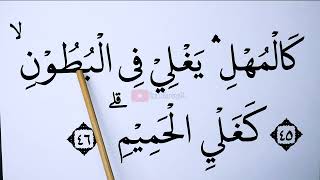 كَالْمُهْلِ ۛ يَغْلِيْ فِى الْبُطُوْنِ ۙ ٤٥
كَغَلْيِ الْحَمِيْمِ ۗ ٤٦